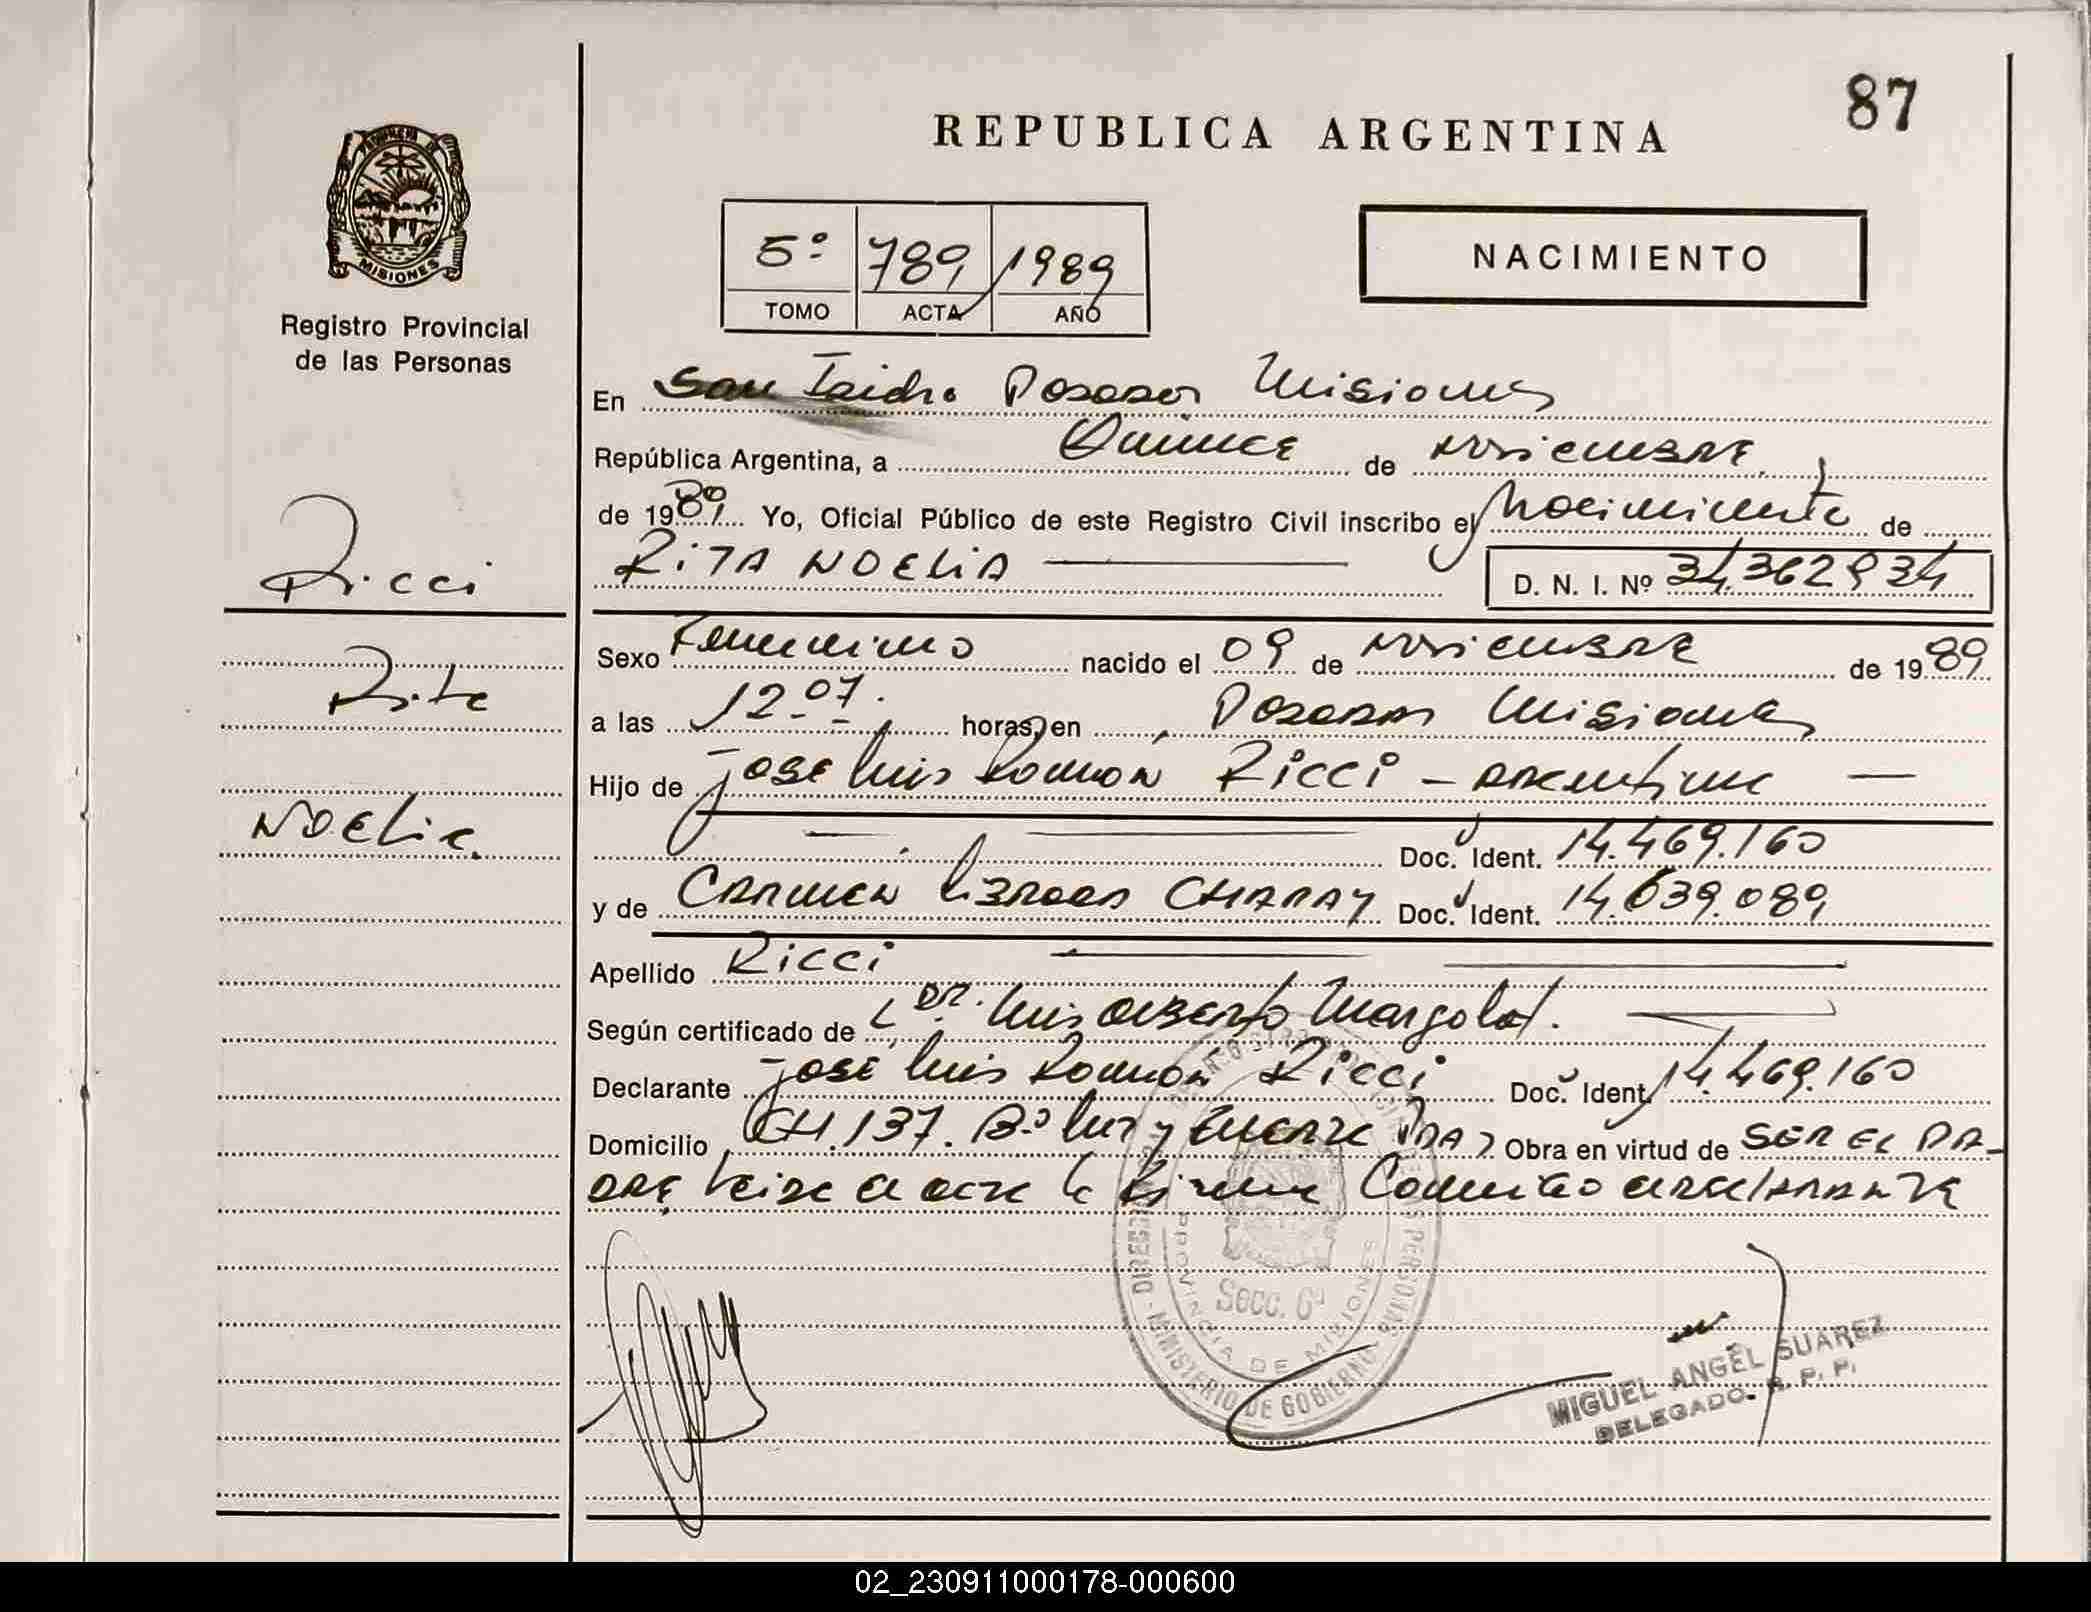 87
REPUBLICA ARGENTINA
PROVINCIA DE
MISIONES
5º 789 1989
TOMO ACTA AÑO
NACIMIENTO
Registro Provincial
de las Personas
En San Isidro Posadas Misiones
República Argentina, a Quince de Noviembre
de 1989. Yo, Oficial Público de este Registro Civil inscribo el Nacimiento de
RITA NOELIA
D. N. I. Nº 34.362934
Ricci
Rita
NOELIA
Sexo Femenino nacido el 09 de Noviembre de 1989
a las 12-07. horas, en Posadas Misiones
Hijo de José Luis Ramón Ricci - argentino
Doc. Ident. 14.469.160
y de CARMEN CHARAY Doc. Ident. 14.639.089
Apellido Ricci
Según certificado de DR. Luis Alberto Margalot.
Declarante José Luis Ramón Ricci Doc. Ident. 14.469.160
Domicilio CH.137. Bº Luz y Fuerza Pdas Obra en virtud de SER EL PA-
DRE leída el acta la firma Conmigo el declarante
PROVINCIA DE MISIONES
MINISTERIO DE GOBIERNO
Secc. 6ª
MIGUEL ANGEL SUAREZ
DELEGADO R. P. P.
02_230911000178-000600